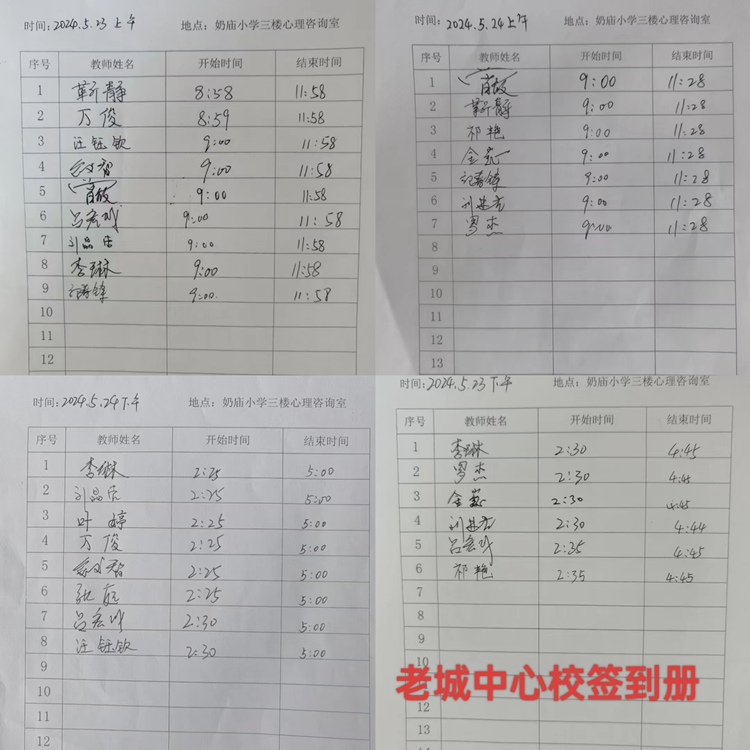 时间：2024.5.23 上午 地点：奶庙小学三楼心理咨询室
序号 教师姓名 开始时间 结束时间
1 靳静 8:58 11:58
2 万俊 8:59 11:58
3 汪钰钦 9:00 11:58
4 9:00 11:58
5 9:00 11:58
6 9:00 11:58
7 刘品店 9:00 11:58
8 李琳 9:00 11:58
9 9:00 11:58
10
11
12
时间：2024.5.24 上午 地点：奶庙小学三楼心理咨询室
序号 教师姓名 开始时间 结束时间
1 9:00 11:28
2 靳静 9:00 11:28
3 祁艳 9:00 11:28
4 9:00 11:28
5 9:00 11:28
6 9:00 11:28
7 罗杰 9:00 11:28
8
9
10
11
12
13
时间：2024.5.24 下午 地点：奶庙小学三楼心理咨询室
序号 教师姓名 开始时间 结束时间
1 李琳 2:25 5:00
2 2:25 5:00
3 叶婷 2:25 5:00
4 万俊 2:25 5:00
5 2:25 5:00
6 2:25 5:00
7 2:30 5:00
8 汪钰钦 2:30 5:00
9
10
11
12
时间：2024.5.23 下午 地点：奶庙小学三楼心理咨询室
序号 教师姓名 开始时间 结束时间
1 李琳 2:30 4:45
2 罗杰 2:30 4:45
3 2:30 4:45
4 2:30 4:44
5 2:35 4:45
6 祁艳 2:35 4:45
7
8
9
10
11
12
13
老城中心校签到册